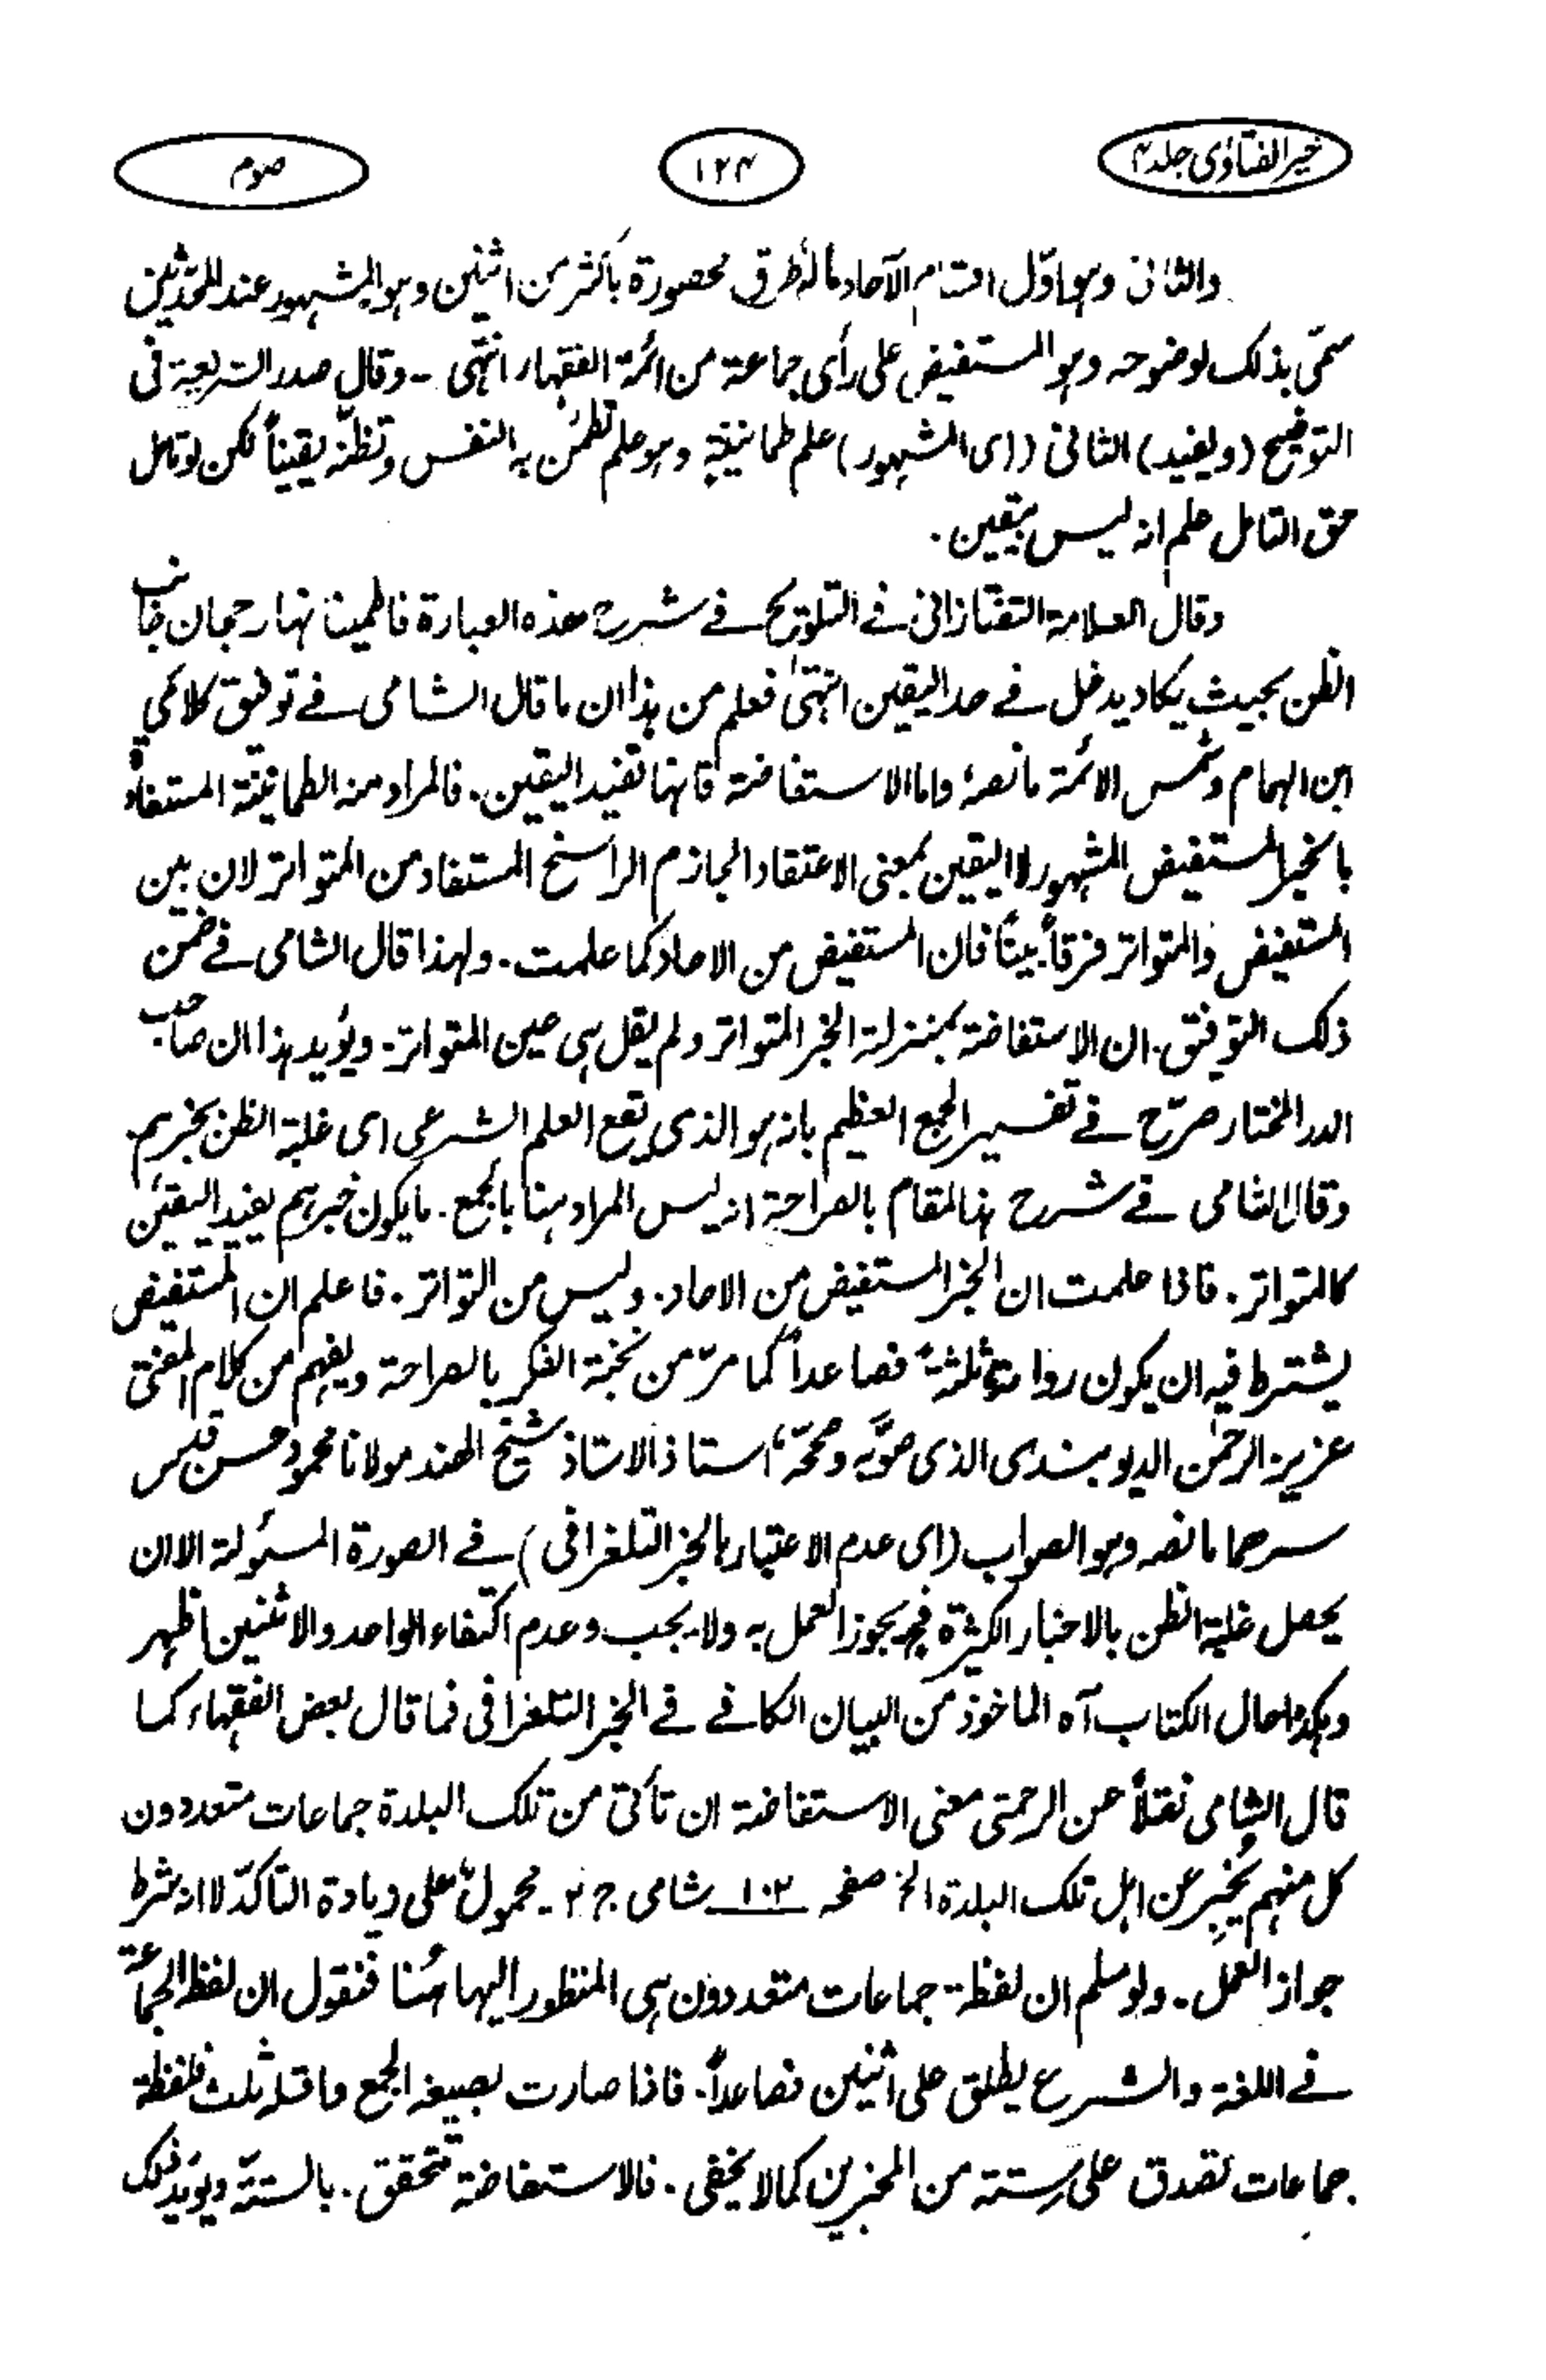 خیر الفتاوٰی جلد ۴
۱۲۴
صوم
والثانی وہو اوّل اقسام الآحاد مالہٗ طرق محصورۃ بأکثر من اثنین وہو المشہور عند المحدّثین
سمّی بذلک لوضوحہ وہو المستفیض علی رأی جماعۃ من ائمۃ الفقہاء انتہٰی ۔ وقال صدر الشریعۃ فی
التوضیح (ویفید) الثانی ((ای المشہور) علم طمانینۃٍ وہو علم تطمئن بہ النفس وتظنّہ یقیناً لکن لو تامل
حق التامل علم انہ لیس بیقین ۔
وقال العلامۃ التفتازانی فی التلویح فی شرح ھذہ العبارۃ فاطمینانہا رجحان جانب
الظن بحیث یکاد یدخل فی حد الیقین انتہیٰ فعلم من ہذا ان ما قال الشامی فی توفیق کلامی
ابن الہمام وشمس الائمۃ ما نصہٗ واما الاستفاضۃ فانہا تفید الیقین ۔ فالمراد منہ الطمانینۃ المستفادۃ
بالخبر المستفیض المشہور لا الیقین بمعنی الاعتقاد الجازم الراسخ المستفاد من المتواتر لان بین
المستفیض والمتواتر فرقاً بیناً فان المستفیض من الاحاد کما علمت ۔ ولہذا قال الشامی فی ضمن
ذلک التوفیق ۔ ان الاستفاضۃ بمنزلۃ الخبر المتواتر ولم یقل ہی عین المتواتر ۔ ویؤید ہذا ان صاحب
الدر المختار صرّح فی تفسیر الجمع العظیم بانہ ہو الذی یقع العلم الشرعی ای غلبۃ الظن بخبرہم
وقال الشامی فی شرح ہذا المقام بالصراحۃ انہ لیس المراد ہہنا بالجمع ۔ ما یکون خبرہم یفید الیقین
کالمتواتر ۔ فاذا علمت ان الخبر المستفیض من الاحاد ۔ ولیس من التواتر ۔ فاعلم ان المستفیض
یشترط فیہ ان یکون رواتہ ثلثۃ فصاعداً کما مرّ من نخبۃ الفکر بالصراحۃ ویفہم من کلام المفتی
عزیز الرحمٰن الدیوبندی الذی صوّبہ وصححہ استاذ الاستاذ شیخ الھند مولانا محمود حسن قدس
سرھما ما نصہ وہو الصواب (ای عدم الاعتبار بالخبر التلغرافی) فی الصورۃ المسئولۃ الا ان
یحصل غلبۃ الظن بالاخبار الکثیرۃ فح یجوز العمل بہ ولا یجب وعدم اکتفاء الواحد والاثنین اظہر
وہکذا حال الکتاب آہ الماخوذ من البیان الکافی فی الخبر التلغرافی فما قال بعض الفقہاء کما
قال الشامی نقلاً عن الرحمتی معنی الاستفاضۃ ان تأتی من تلک البلدۃ جماعات متعددون
کل منہم یُخبِر عن اہل تلک البلدۃ الخ صفحہ ۱۰۲ شامی ج ۲ ۔ محمولٌ علی زیادۃ التاکدّ لا انہ شرط
جواز العمل ۔ ولو سلم ان لفظۃ جماعات متعددون ہی المنظور الیہا ھٰہنا فنقول ان لفظ الجماعۃ
فی اللغۃ والشرع یطلق علی اثنین فصاعداً ۔ فاذا صارت بصیغۃ الجمع فاقلہ ثلث فلفظۃ
جماعات تصدق علی ستۃ من المخبرین کما لا یخفی ۔ فالاستفاضۃ تتحقق ۔ بالستّۃ ویؤید ذلک